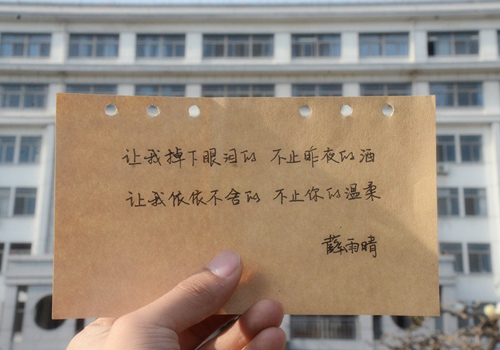 让我掉下眼泪的 不止昨夜的酒
让我依依不舍的 不止你的温柔
薛雨晴